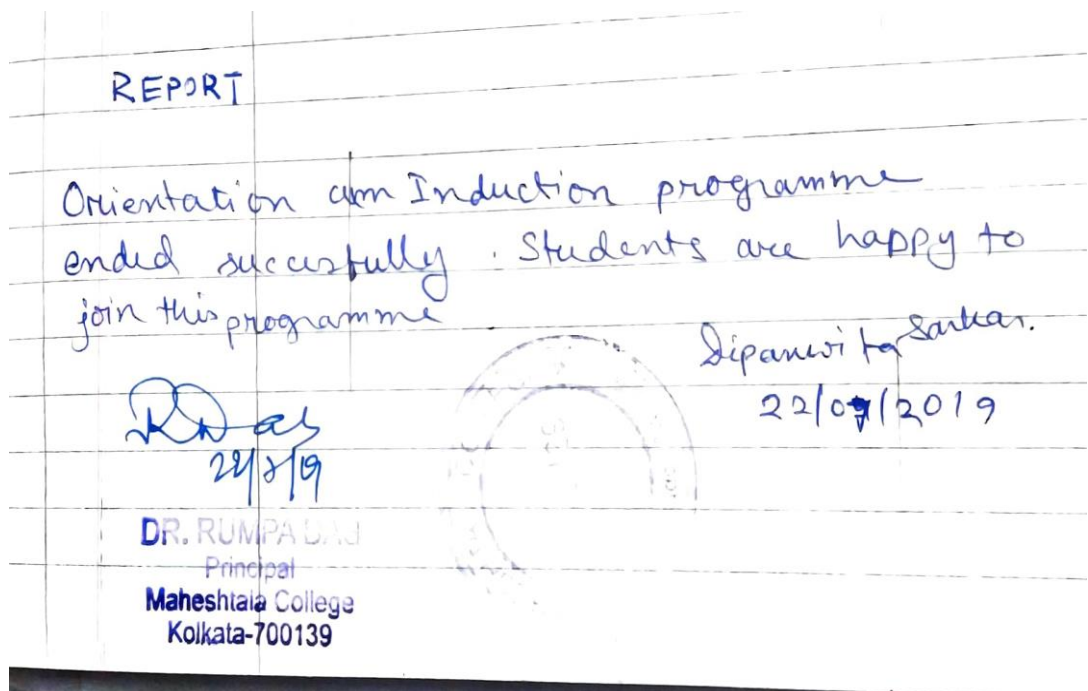 REPORT
Orientation cum Induction programme
ended succesfully. Students are happy to
join this programme
Dipanwita Sarkar.
22/07/2019
RDas
22/7/19
DR. RUMPA DAS
Principal
Maheshtala College
Kolkata-700139